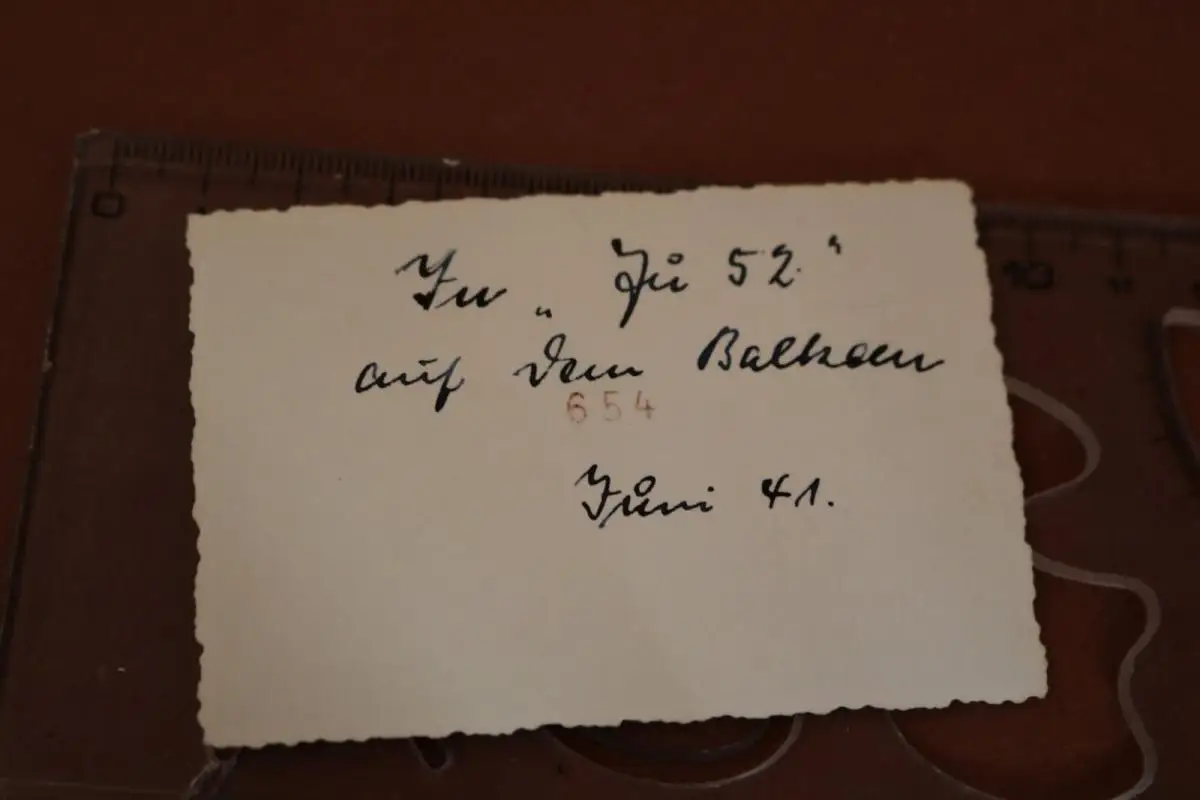 0
10 11
In „Ju 52."
auf dem Balkan
654
Juni 41.